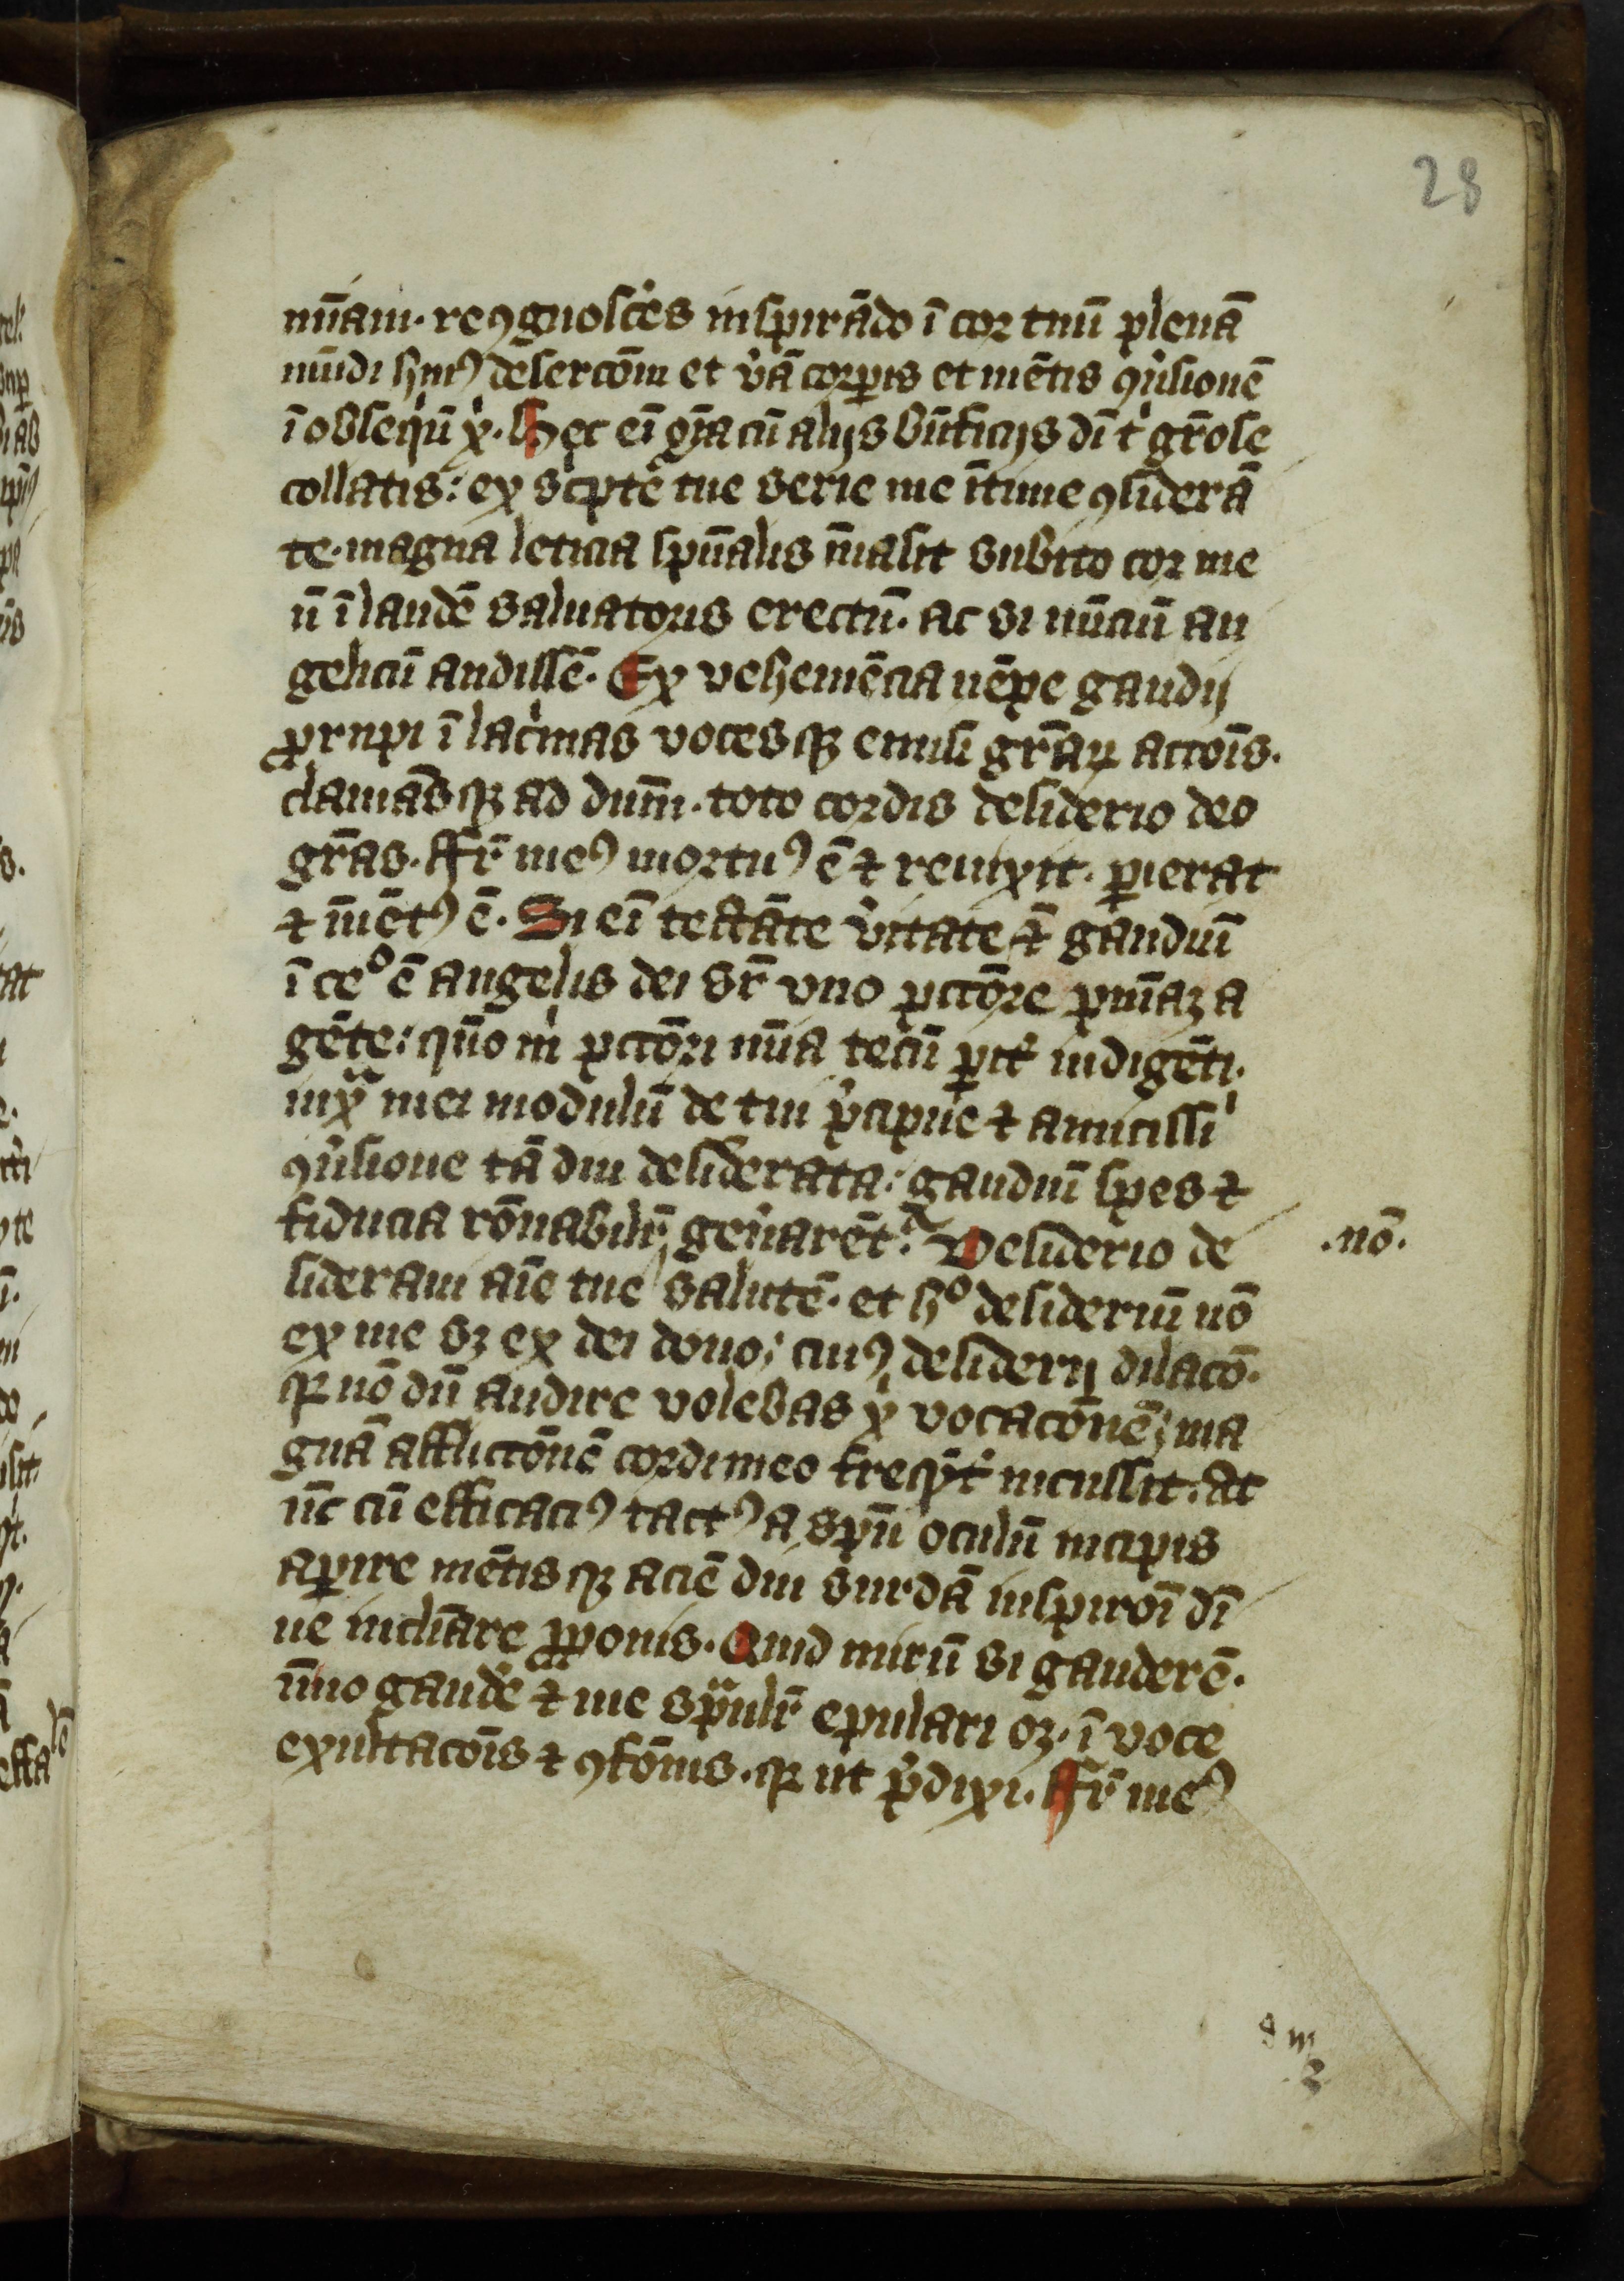 28
mīam· reꝯgnoſcēs inſpirādo ī cor tuū plenā
mūdi huiꝰ deſercōm et v̓ā corp̄is et mētis ꝯu̓ſionē
ī obſeqū xi̓· hec eī oīa cū alijs bn̄ficijs dī t' gr̄oſe
collatis: ex sc̓ptē tue serie me ītime ꝯſiderā
te· magna leticia ſpūalis īuaſit subito cor me
ū ī laudē saluatoris erectū· ac si nūciū an
gelicū audiſſē· Ex vehemēcia nēpe gaudij
ꝓrupi ī lac̓mas voces qꝫ emiſi gr̄aꝝ actōis·
clamās qꝫ ad dūm· toto cordis deſiderio deo
gr̄as· ffr̄ meꝰ mortuꝰ ē ⁊ reuixit· ꝑierat
⁊ īuētꝰ ē· Si eī teſtāte v̓itate ē gaudiū
ī ceº ē angelis dei sr̄ vno pctōre pn̄iaꝫ a
gēte: quō m̓ pctōri mīa tecū ꝑit̓ indigēti·
iuxᵃ mei modulū de tui p̓cipue ⁊ amiciſſi
ꝯu̓ſione tā diu deſiderata: gaudiū ſpes ⁊
fiducia rōnabilr̄ gen̓arēt᷑· Deſiderio de
ſideraui aīe tue salutē· et hº deſideriū nō
ex me sꝫ ex dei dono; cuiꝰ deſiderij dilacō·
qꝛ nō dū audire volebas xi̓ vocacōnē; ma
gnā afflictōnē cordi meo freqn̄t̓ incuſſit· at
nc̄ cū efficaciꝰ tactꝰ a spū oculū incipis
aꝑire mētis qꝫ aciē diu surdā inſpiroī dī
ne inclīare ꝓponis· Quid mirū si gauderē·
īmo gaud̓e ⁊ me sp̄ulr̄ epulari oꝫ· ī voce
exultacōis ⁊ ꝯfōnis· qꝛ ut p̓dixi· ffr̄ meꝰ
·nō·